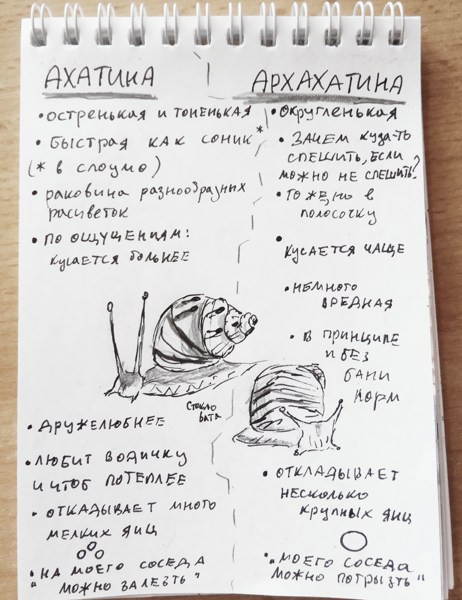 АХАТИНА
• ОСТРЕНЬКАЯ И ТОНЕНЬКАЯ
• БЫСТРАЯ КАК СОНИК*
(* В СЛОУМО)
• РАКОВИНА РАЗНООБРАЗНЫХ
РАСЦВЕТОК
• ПО ОЩУЩЕНИЯМ:
КУСАЕТСЯ БОЛЬНЕЕ
• ДРУЖЕЛЮБНЕЕ
• ЛЮБИТ ВОДИЧКУ
И ЧТОБ ПОТЕПЛЕЕ
• ОТКАДЫВАЕТ МНОГО
МЕЛКИХ ЯИЦ
• НА МОЕГО СОСЕДА
"МОЖНО ЗАЛЕЗТЬ"
АРХАХАТИНА
• ОКРУГЛЕНЬКАЯ
• ЗАЧЕМ КУДА-ТО
СПЕШИТЬ, ЕСЛИ
МОЖНО НЕ СПЕШИТЬ?
• ТО ЖЕ, НО В
ПОЛОСОЧКУ
• КУСАЕТСЯ ЧАЩЕ
• НЕМНОГО
ВРЕДНАЯ
• В ПРИНЦИПЕ
И БЕЗ
БАНИ
НОРМ
СТЕКЛО
ВАТА
• ОТКЛАДЫВАЕТ
НЕСКОЛЬКО
КРУПНЫХ ЯИЦ
• "МОЕГО СОСЕДА
МОЖНО ПОГРЫЗТЬ"